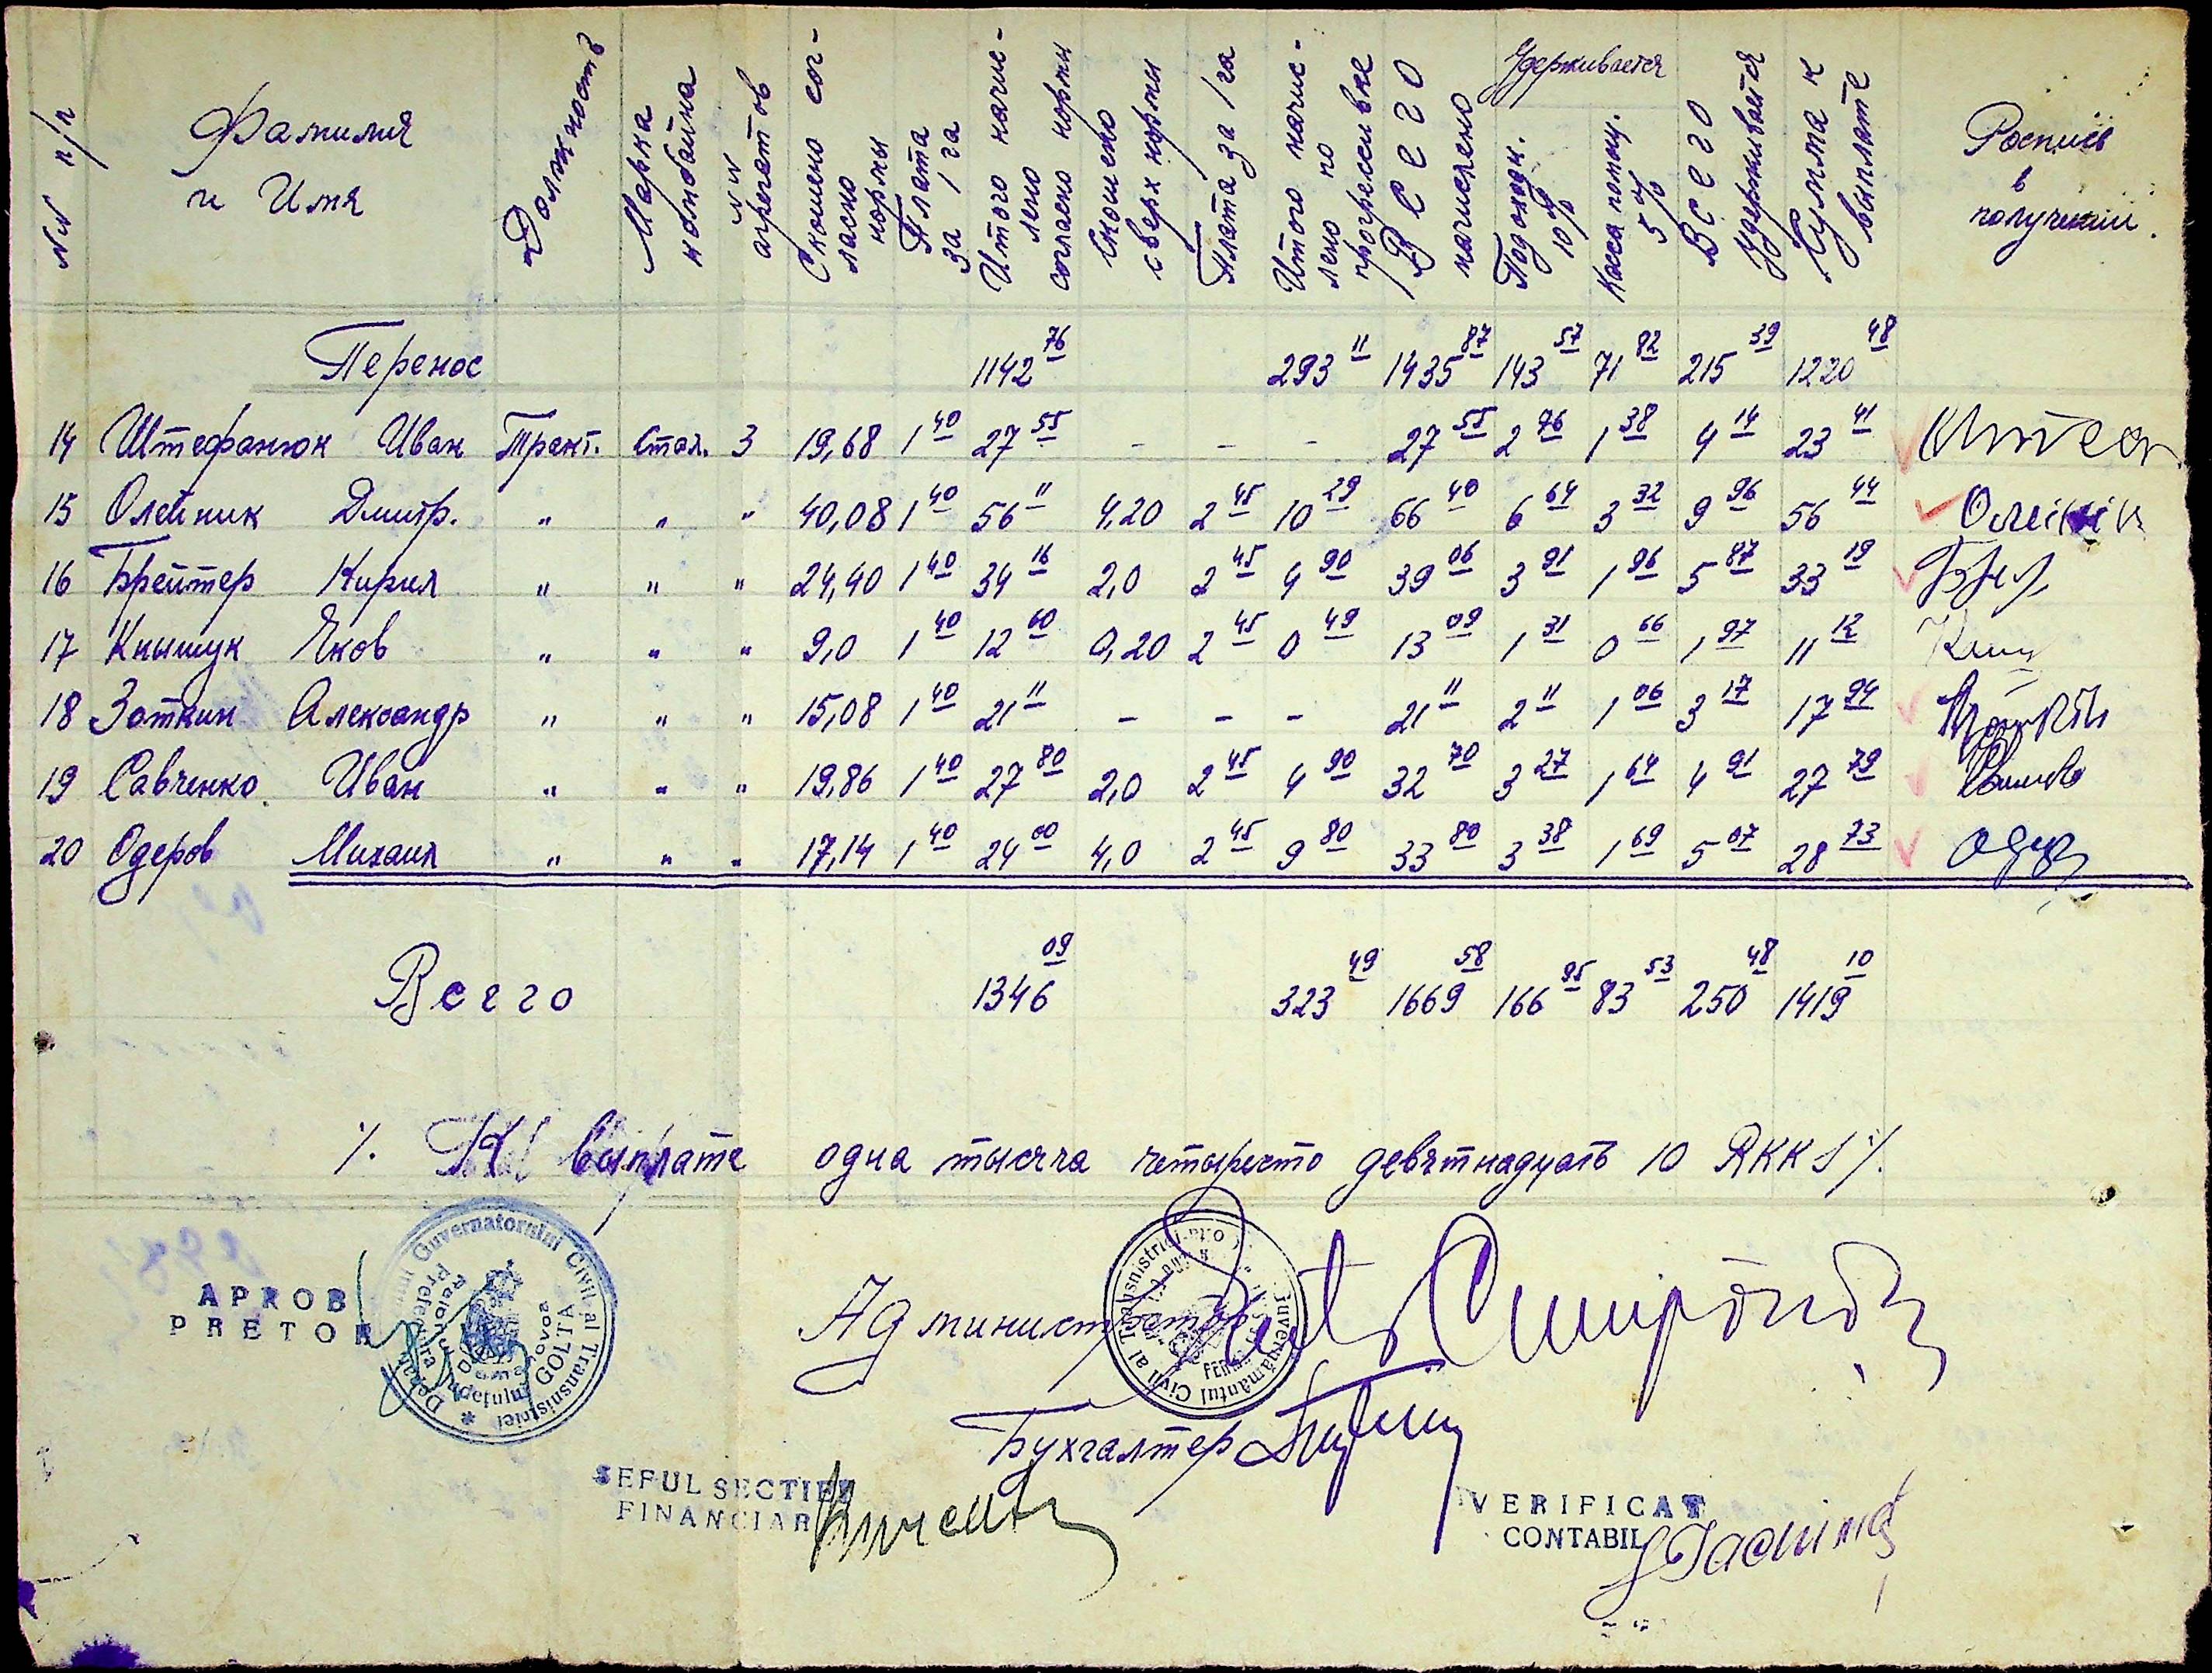 №№ п/п
Фамилия и Имя
Должность
Марка комбайна
№№ агрегатов
Скошено сог-
ласно
нормы
Плата
за 1 га
Итого начис-
лено
согласно нормы
Скошено
сверх нормы
Плата за 1 га
Итого начис-
лено по
прогрессивке
Всего
начислено
Удерживается
Подоходн.
10%
Касса помощ.
5%
Всего
Удерживается
Сумма к
выплате
Роспись
в
получении.
Перенос 1142 76 293 11 1435 87 143 57 71 82 215 39 1220 48
14 Штефанюк Иван Тракт. Стал. 3 19,68 1 40 27 55 - - - 27 55 2 76 1 38 4 14 23 41
15 Олейник Дмитр. " " " 40,08 1 40 56 11 4,20 2 45 10 29 66 40 6 64 3 32 9 96 56 44
16 Брейтер Кирил " " " 24,40 1 40 34 16 2,0 2 45 4 90 39 06 3 91 1 96 5 87 33 19
17 Кнышук Яков " " " 9,0 1 40 12 60 0,20 2 45 0 49 13 09 1 31 0 66 1 97 11 12
18 Заткин Александр " " " 15,08 1 40 21 11 - - - 21 11 2 11 1 06 3 17 17 94
19 Савченко Иван " " " 19,86 1 40 27 80 2,0 2 45 4 90 32 70 3 27 1 64 4 91 27 79
20 Одеров Михаил " " " 17,14 1 40 24 00 4,0 2 45 9 80 33 80 3 38 1 69 5 07 28 73
Всего 1346 09 323 49 1669 58 166 95 83 53 250 48 1419 10
К выплате одна тысяча четыресто девятнадцать 10 RKKS
APROB
PRETOR
Guvernatorului Civil al Transnistriei
Prefectura Județului GOLTA
Администратор
Guvernământul Civil al Transnistriei
Бухгалтер
SEFUL SECTIEI
FINANCIAR
VERIFICAT
CONTABIL